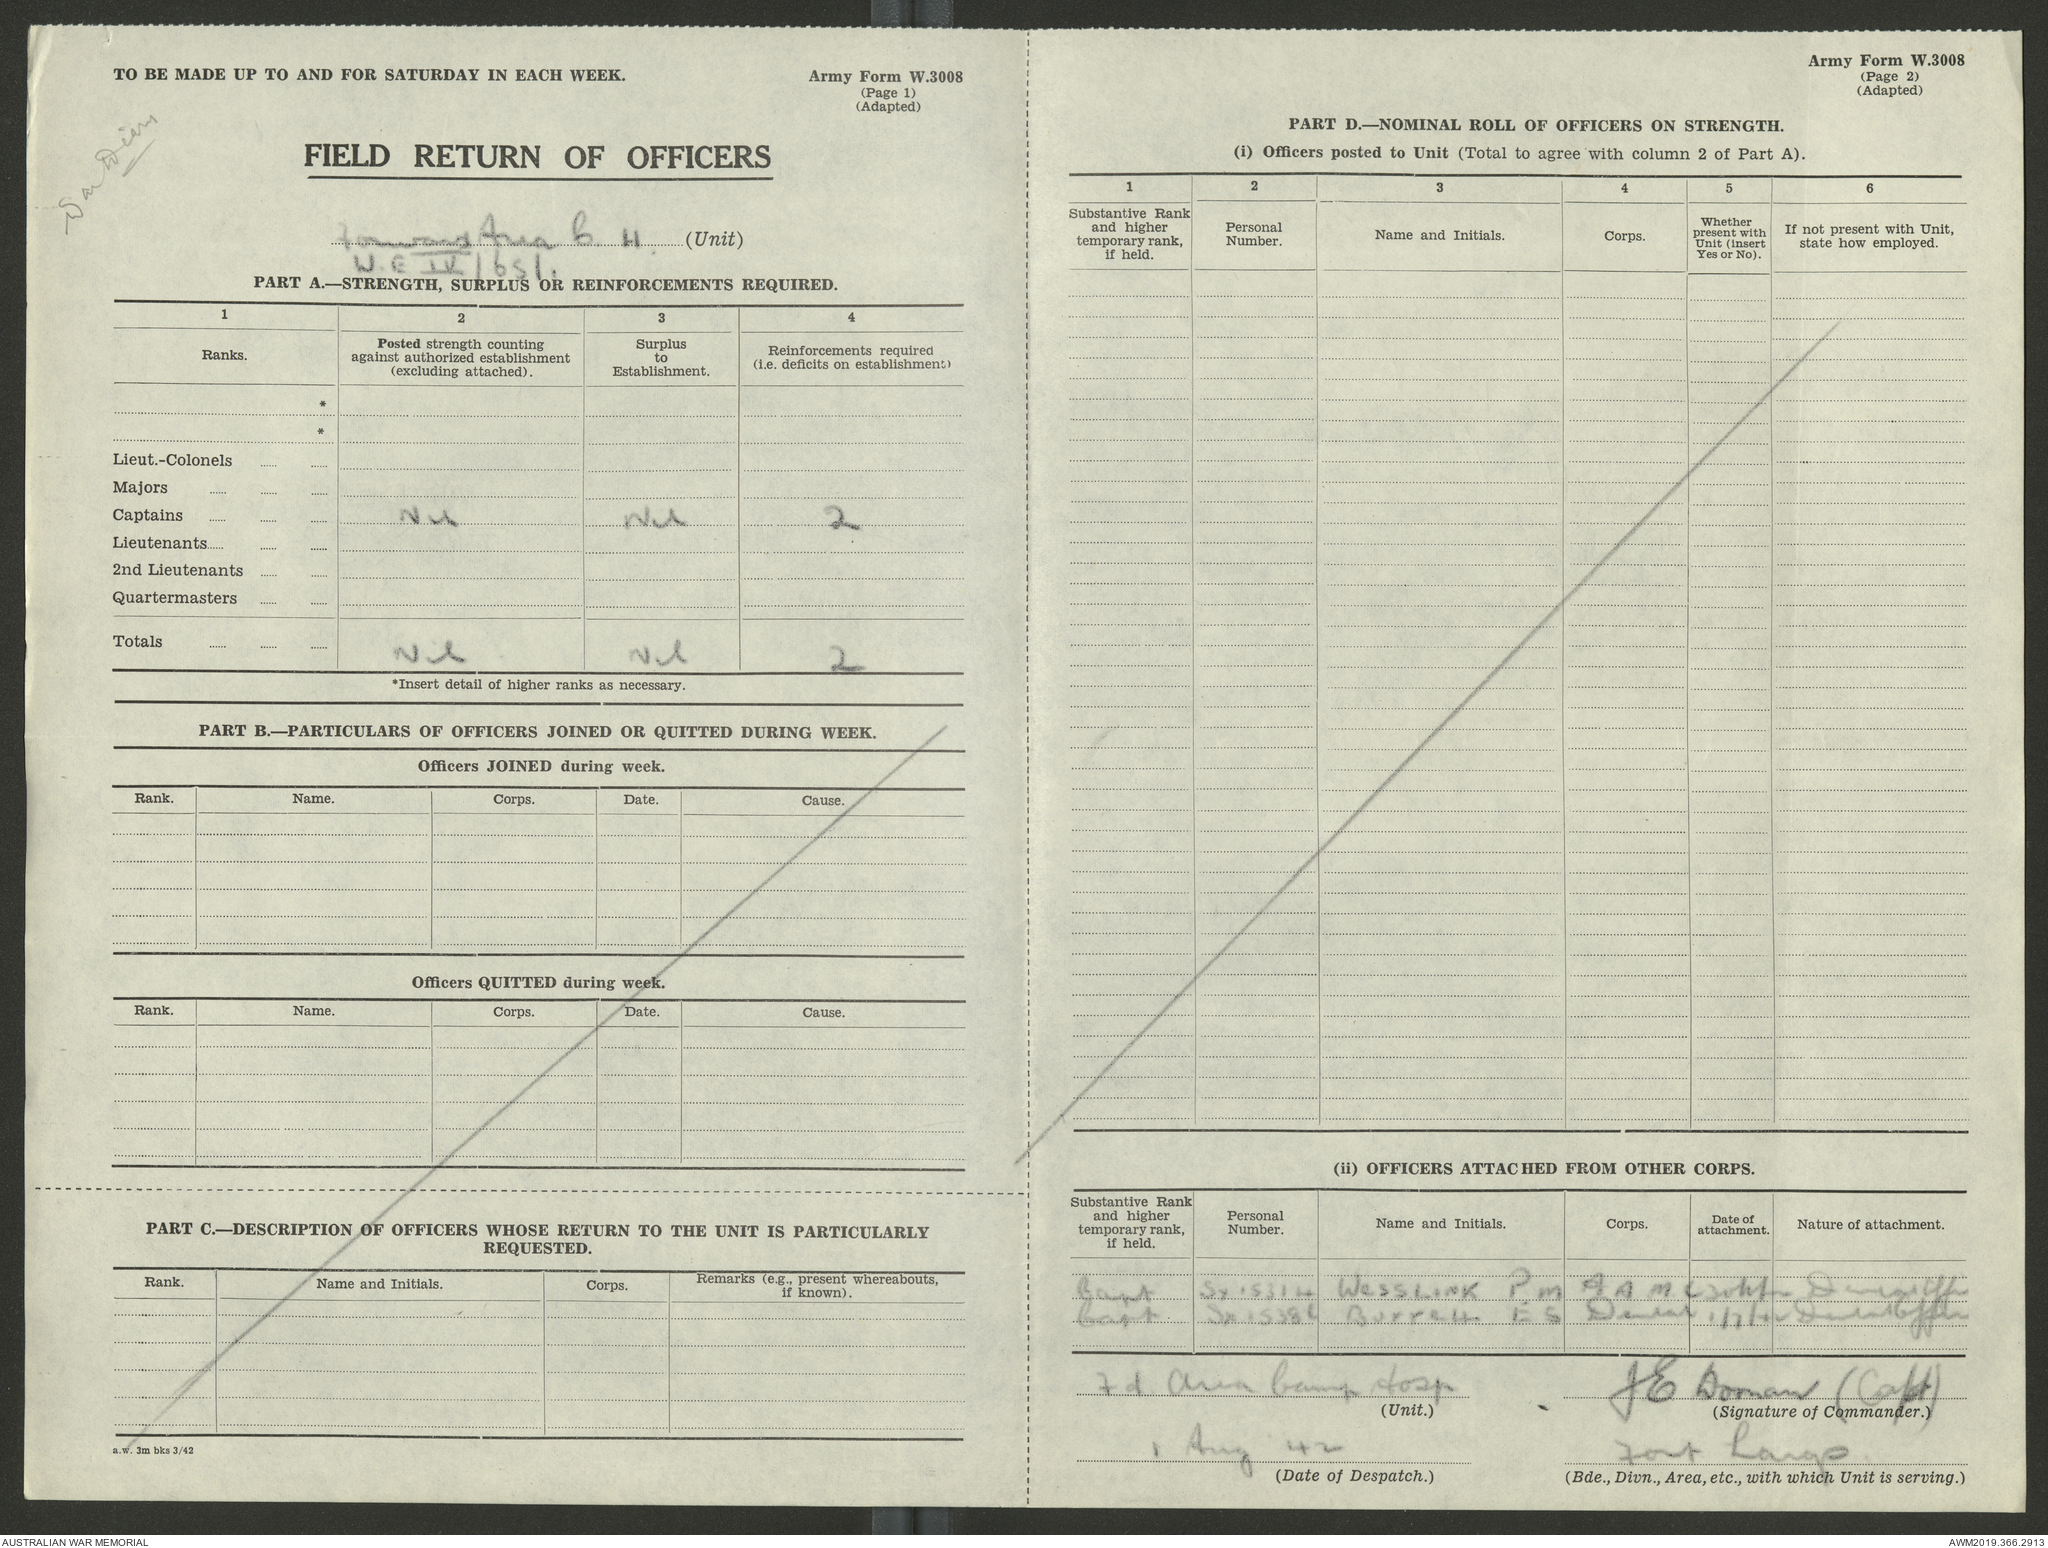 TO BE MADE UP TO AND FOR SATURDAY IN EACH WEEK.
Army Form W.3008
(Page 1)
(Adapted)
War Diary
FIELD RETURN OF OFFICERS
Forward Area C H. (Unit)
W.E IV/651.
PART A.—STRENGTH, SURPLUS OR REINFORCEMENTS REQUIRED.
1 2 3 4
Ranks.
Posted strength counting
against authorized establishment
(excluding attached).
Surplus
to
Establishment.
Reinforcements required
(i.e. deficits on establishment)
*
*
Lieut.-Colonels
Majors
Captains Nil Nil 2
Lieutenants
2nd Lieutenants
Quartermasters
Totals Nil Nil 2
*Insert detail of higher ranks as necessary.
PART B.—PARTICULARS OF OFFICERS JOINED OR QUITTED DURING WEEK.
Officers JOINED during week.
Rank. Name. Corps. Date. Cause.
Officers QUITTED during week.
Rank. Name. Corps. Date. Cause.
PART C.—DESCRIPTION OF OFFICERS WHOSE RETURN TO THE UNIT IS PARTICULARLY
REQUESTED.
Rank. Name and Initials. Corps.
Remarks (e.g., present whereabouts,
if known).
a.w. 3m bks 3/42
Army Form W.3008
(Page 2)
(Adapted)
PART D.—NOMINAL ROLL OF OFFICERS ON STRENGTH.
(i) Officers posted to Unit (Total to agree with column 2 of Part A).
1 2 3 4 5 6
Substantive Rank
and higher
temporary rank,
if held.
Personal
Number.
Name and Initials.
Corps.
Whether
present with
Unit (insert
Yes or No).
If not present with Unit,
state how employed.
(ii) OFFICERS ATTACHED FROM OTHER CORPS.
Substantive Rank
and higher
temporary rank,
if held.
Personal
Number.
Name and Initials.
Corps.
Date of
attachment.
Nature of attachment.
Capt Sx15314 WESSLINK P M A A M C
Capt Burrell E S Dental 1/7/42
Fd Area Camp Hosp
(Unit.)
J E Dornan (Capt)
(Signature of Commander.)
1 Aug 42
(Date of Despatch.)
Fort Largs.
(Bde., Divn., Area, etc., with which Unit is serving.)
AUSTRALIAN WAR MEMORIAL
AWM2019.366.2913